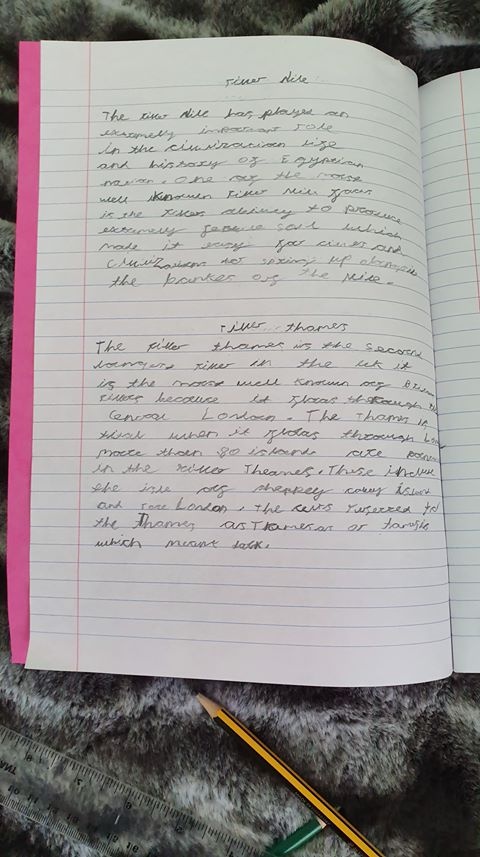 River Nile
The river Nile has played an
extremely important role
in the civilization life
and history of Egyptian
nation. One of the most
well known river Nile facts
is the rivers ability to produce
extremely fertile soil which
made it easy for cities and
civilizations to spring up alongside
the bankes of the Nile.
river thames
The river thames is the second
longest river in the uk it
is the most well known of
rivers because it flows through
Central London. The Thames is
tidal when it flows through
more than 80 islands are
in the river Theames. These include
the isle of sheppey canvy island
and London. The celts referred
the Thames as Tamesas or
which meant dark.